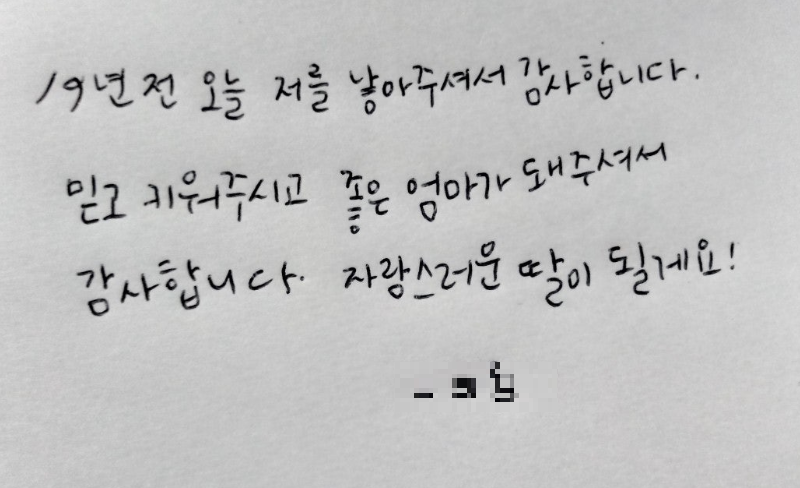 19년 전 오늘 저를 낳아주셔서 감사합니다.
믿고 키워주시고 좋은 엄마가 돼주셔서
감사합니다. 자랑스러운 딸이 될게요!